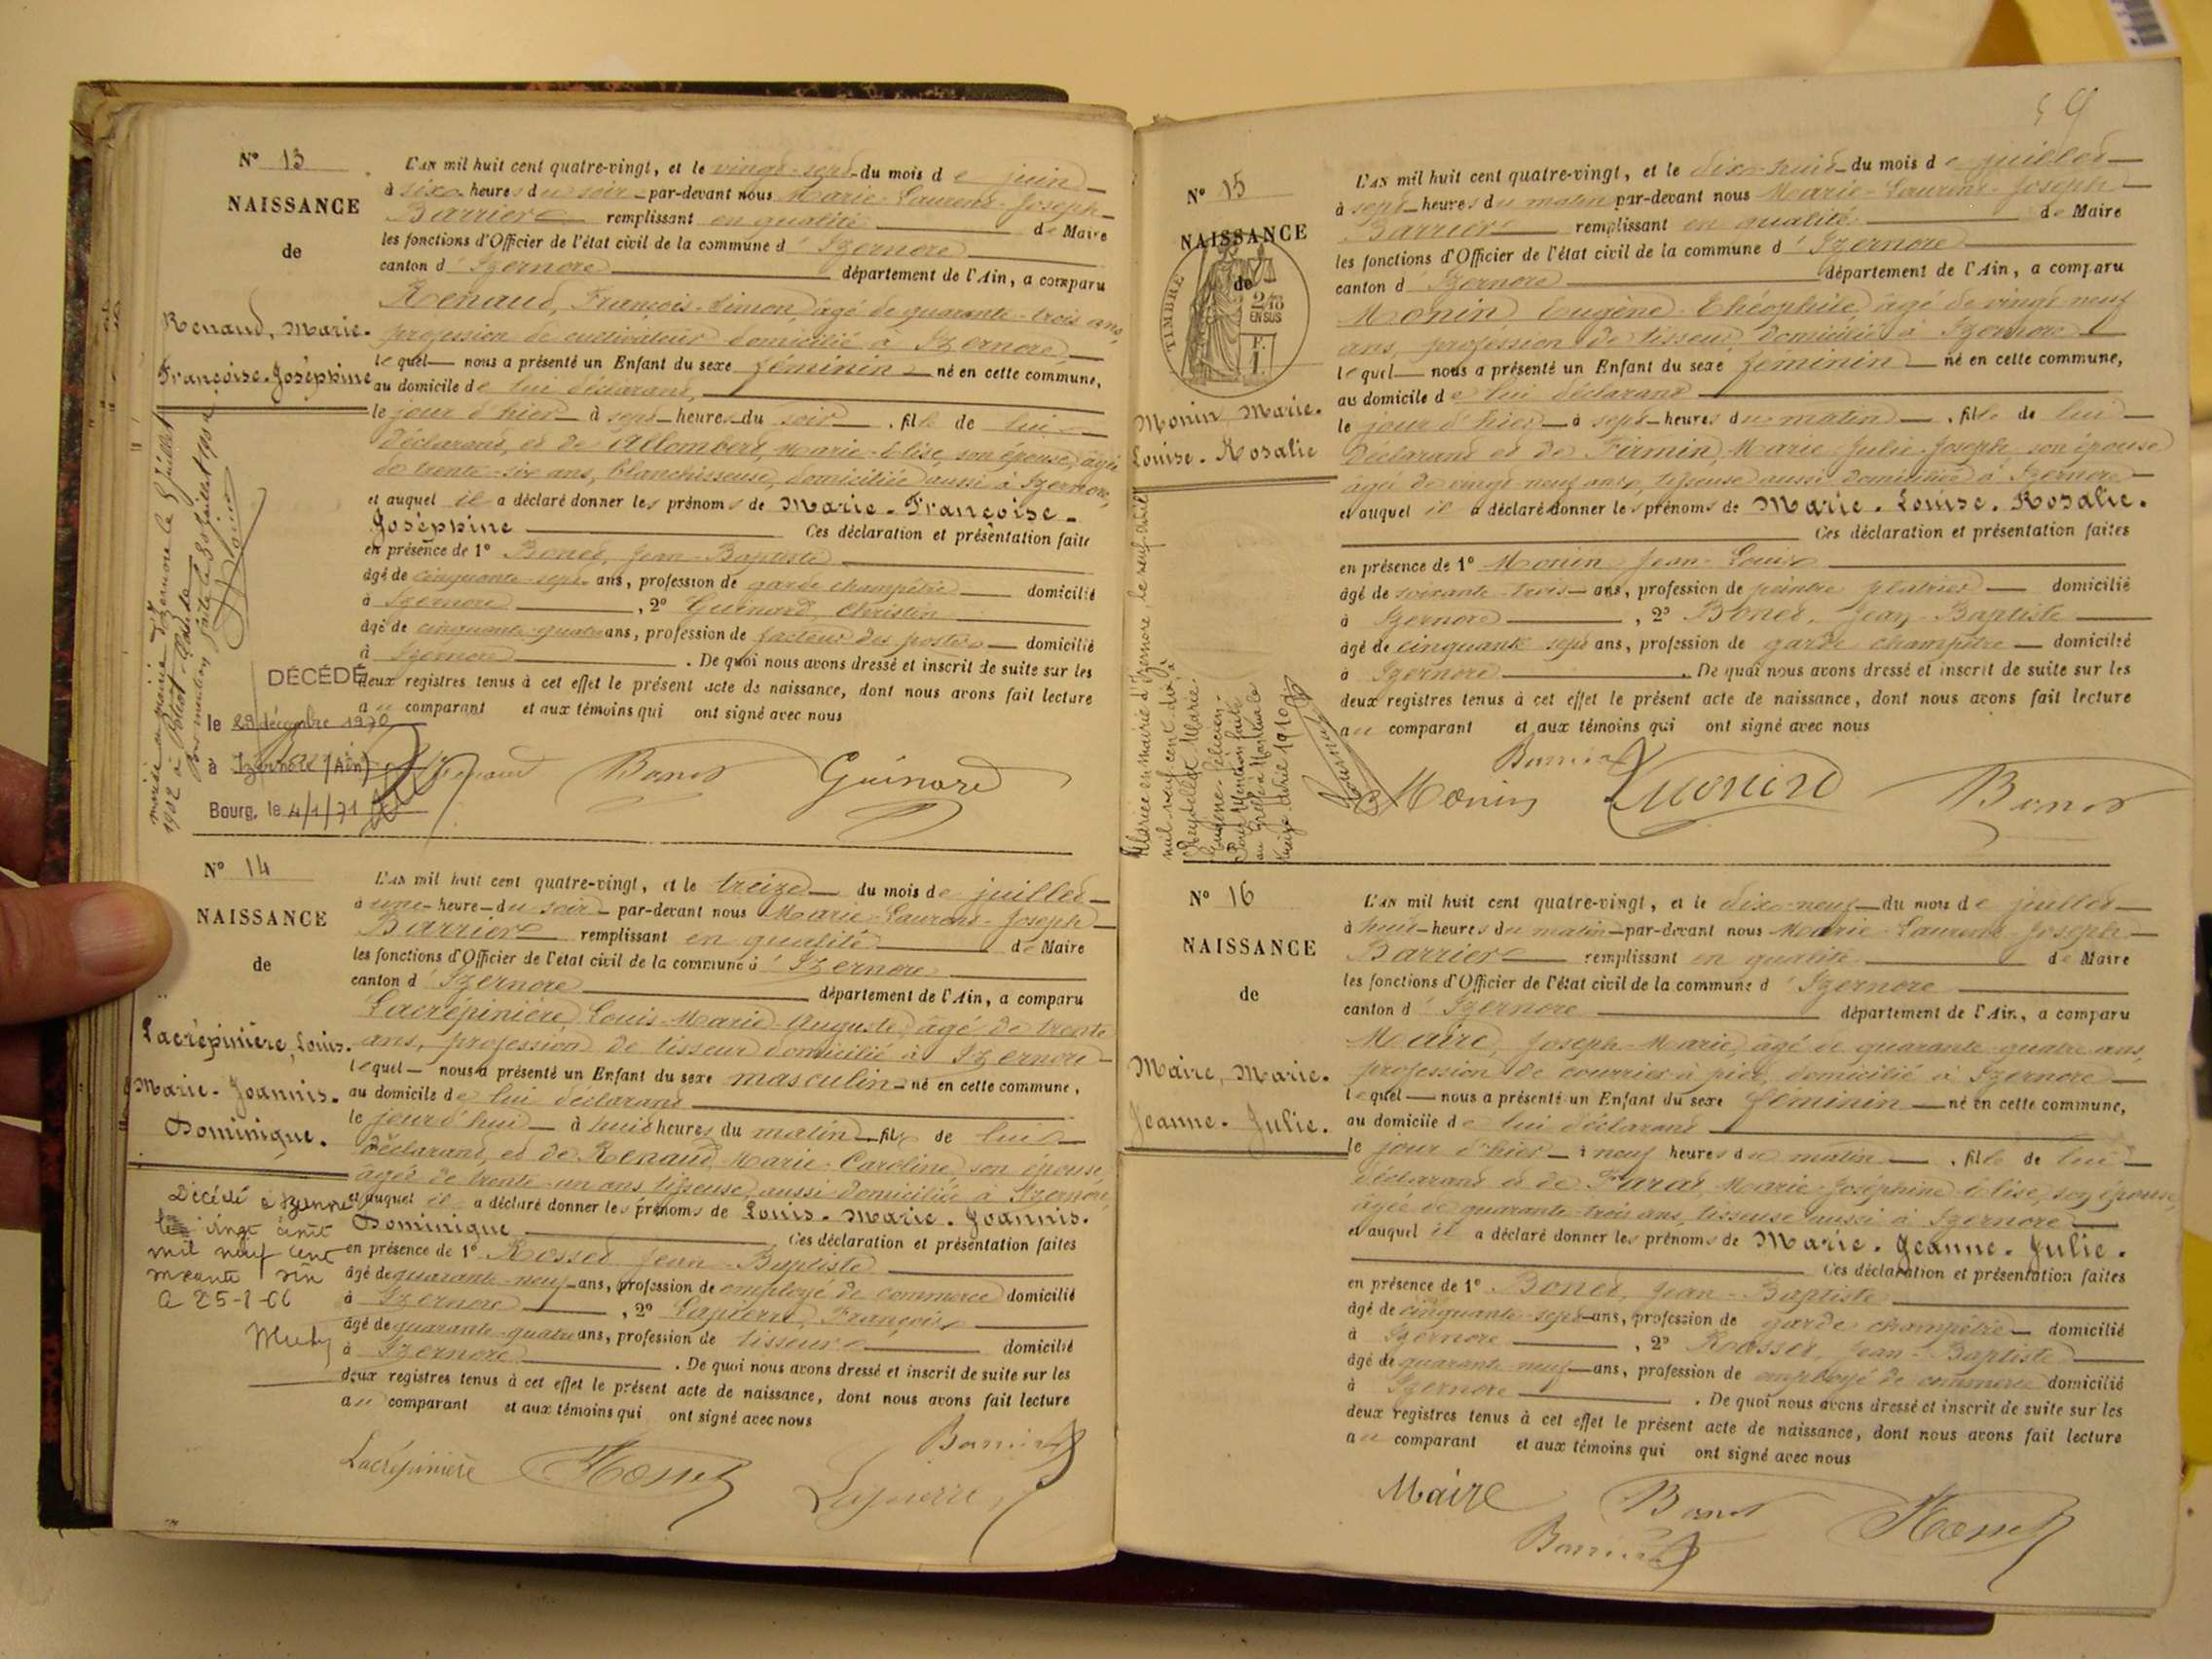 N° 13
NAISSANCE
de
Renaud, Marie-
Françoise-Joséphine
L'AN mil huit cent quatre-vingt, et le vingt-sept du mois de juin
à six heures du soir par-devant nous Marie-Laurent-Joseph-
Barrier remplissant en qualité de Maire
les fonctions d'Officier de l'état civil de la commune d'Izernore
canton d'Izernore département de l'Ain, a comparu
Renaud, François-Simon, âgé de quarante-trois ans,
profession de cultivateur domicilié à Izernore
lequel nous a présenté un Enfant du sexe féminin né en cette commune,
au domicile de lui déclarant,
le jour d'hier à sept heures du soir, fille de lui
déclarant, et de Allombert, Marie-Elise, son épouse, âgée
de trente-six ans, blanchisseuse, domiciliée aussi à Izernore,
et auquel il a déclaré donner les prénoms de Marie-Françoise-
Joséphine Ces déclaration et présentation faite
en présence de 1° Bonet, Jean-Baptiste
âgé de cinquante-sept ans, profession de garde champêtre domicilié
à Izernore, 2° Guinard, Christin
âgé de cinquante-quatre ans, profession de facteur des postes domicilié
à Izernore. De quoi nous avons dressé et inscrit de suite sur les
deux registres tenus à cet effet le présent acte de naissance, dont nous avons fait lecture
au comparant et aux témoins qui ont signé avec nous
DÉCÉDÉ
le 29 décembre 1970
à Izernore (Ain)
Bourg, le 4/1/71
Renaud Bonet Guinard
N° 14
NAISSANCE
de
Lacrépinière, Louis-
Marie-Joannis-
Dominique.
L'AN mil huit cent quatre-vingt, et le treize du mois de juillet
à une heure du soir par-devant nous Marie-Laurent-Joseph
Barrier remplissant en qualité de Maire
les fonctions d'Officier de l'état civil de la commune d'Izernore
canton d'Izernore département de l'Ain, a comparu
Lacrépinière, Louis-Marie-Auguste, âgé de trente
ans, profession de tisseur domicilié à Izernore
lequel nous a présenté un Enfant du sexe masculin né en cette commune,
au domicile de lui déclarant
le jour d'hui à huit heures du matin fils de lui
déclarant, et de Renaud Marie-Caroline, son épouse,
âgée de trente-un ans tisseuse, aussi domiciliée à Izernore,
et auquel il a déclaré donner les prénoms de Louis-Marie-Joannis-
Dominique Ces déclaration et présentation faites
en présence de 1° Rosset Jean-Baptiste
âgé de quarante-neuf ans, profession de employé de commerce domicilié
à Izernore, 2° Lapierre, François
âgé de quarante-quatre ans, profession de tisseur domicilié
à Izernore. De quoi nous avons dressé et inscrit de suite sur les
deux registres tenus à cet effet le présent acte de naissance, dont nous avons fait lecture
au comparant et aux témoins qui ont signé avec nous
Décédé à Izernore
le vingt août
mil neuf cent
Lacrépinière Rosset Lapierre Barrier
59
N° 15
NAISSANCE
de
TIMBRE
2/10
EN SUS
Monin, Marie-
Louise-Rosalie
L'AN mil huit cent quatre-vingt, et le dix-huit du mois de juillet
à sept heures du matin par-devant nous Marie-Laurent-Joseph-
Barrier remplissant en qualité de Maire
les fonctions d'Officier de l'état civil de la commune d'Izernore
canton d'Izernore département de l'Ain, a comparu
Monin Eugène-Théophile, âgé de vingt-neuf
ans, profession de tisseur domicilié à Izernore
lequel nous a présenté un Enfant du sexe féminin né en cette commune,
au domicile de lui déclarant
le jour d'hier à sept heures du matin, fille de lui
déclarant et de Firmin, Marie-Julie-Joseph son épouse
âgée de vingt-neuf ans, tisseuse aussi domiciliée à Izernore
et auquel il a déclaré donner les prénoms de Marie-Louise-Rosalie.
Ces déclaration et présentation faites
en présence de 1° Monin Jean-Louis
âgé de soixante-trois ans, profession de peintre plâtrier domicilié
à Izernore, 2° Bonet, Jean-Baptiste
âgé de cinquante sept ans, profession de garde champêtre domicilié
à Izernore. De quoi nous avons dressé et inscrit de suite sur les
deux registres tenus à cet effet le présent acte de naissance, dont nous avons fait lecture
au comparant et aux témoins qui ont signé avec nous
Mariée en mairie d'Izernore, le neuf avril
mil neuf cent dix à
Eugène-Félicien.
Pour mention faite
au Greffe à Nantua le
treize avril 1910
Barrier
Monin Monin Bonet
N° 16
NAISSANCE
de
Maire, Marie-
Jeanne-Julie.
L'AN mil huit cent quatre-vingt, et le dix-neuf du mois de juillet
à huit heures du matin par-devant nous Marie-Laurent-Joseph
Barrier remplissant en qualité de Maire
les fonctions d'Officier de l'état civil de la commune d'Izernore
canton d'Izernore département de l'Ain, a comparu
Maire, Joseph-Marie, âgé de quarante-quatre ans,
profession de courrier à pied, domicilié à Izernore
lequel nous a présenté un Enfant du sexe féminin né en cette commune,
au domicile de lui déclarant
le jour d'hier à neuf heures du matin, fille de lui
déclarant et de Farat, Marie-Joséphine-Elise, son épouse,
âgée de quarante-trois ans, tisseuse aussi à Izernore
et auquel il a déclaré donner les prénoms de Marie-Jeanne-Julie.
Ces déclaration et présentation faites
en présence de 1° Bonet, Jean-Baptiste
âgé de cinquante-sept ans, profession de garde champêtre domicilié
à Izernore, 2° Rosset, Jean-Baptiste
âgé de quarante-neuf ans, profession de employé de commerce domicilié
à Izernore. De quoi nous avons dressé et inscrit de suite sur les
deux registres tenus à cet effet le présent acte de naissance, dont nous avons fait lecture
au comparant et aux témoins qui ont signé avec nous
Maire Bonet Rosset
Barrier